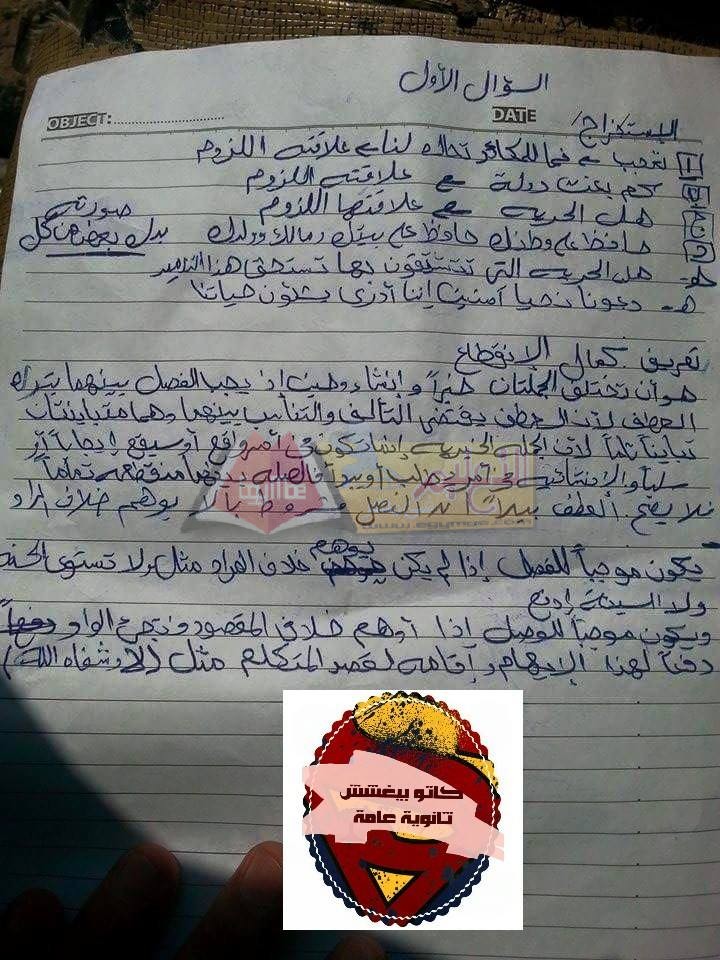 السؤال الأول
OBJECT: DATE
الاستخراج/
أ تعجب فما للمكانو تحاله لنا علاقته اللزوم
ب كم بعثت دولة علاقته اللزوم
ج هل الحرية علاقتها اللزوم
د حافظ على وطنك حافظ على بيتك ومالك وولدك صورته بدل بعض من كل
هـ هل الحرية التي تتشدقون بها تستحق هذا التدمير
هـ دعونا نحيا آمنين إننا أدرى بشئون حياتنا
تعريف كمال الإنقطاع
هو أن تختلف الجملتان خبراً وإنشاء وحينئذ يجب الفصل بينهما بترك
العطف لأن العطف يقتضي التآلف والتناسب بينهما وهما متباينتان
تبايناً تاماً لأن الجملة الخبرية إنما تكون في أمر واقع أو سيقع إيجاباً أو
سلباً والإنشائية في أمر يطلب أو يبدأ فالصلة بينهما منقطعة تماماً
فلا يصح العطف الفصل بألا يوهم خلاف المراد
- يكون موجباً للفصل إذا لم يكن يوهم خلاف المراد مثل ولا تستوى الحسنة
ولا السيئة إدفع
ويكون موجباً للوصل إذا أوهم خلاف المقصود فتجئ الواو
دفعاً لهذا الإيهام وإقامة لقصد المتكلم مثل (لا وشفاه الله)
التعليم
www.egymoe.com
كاتو بيغشش
ثانوية عامة